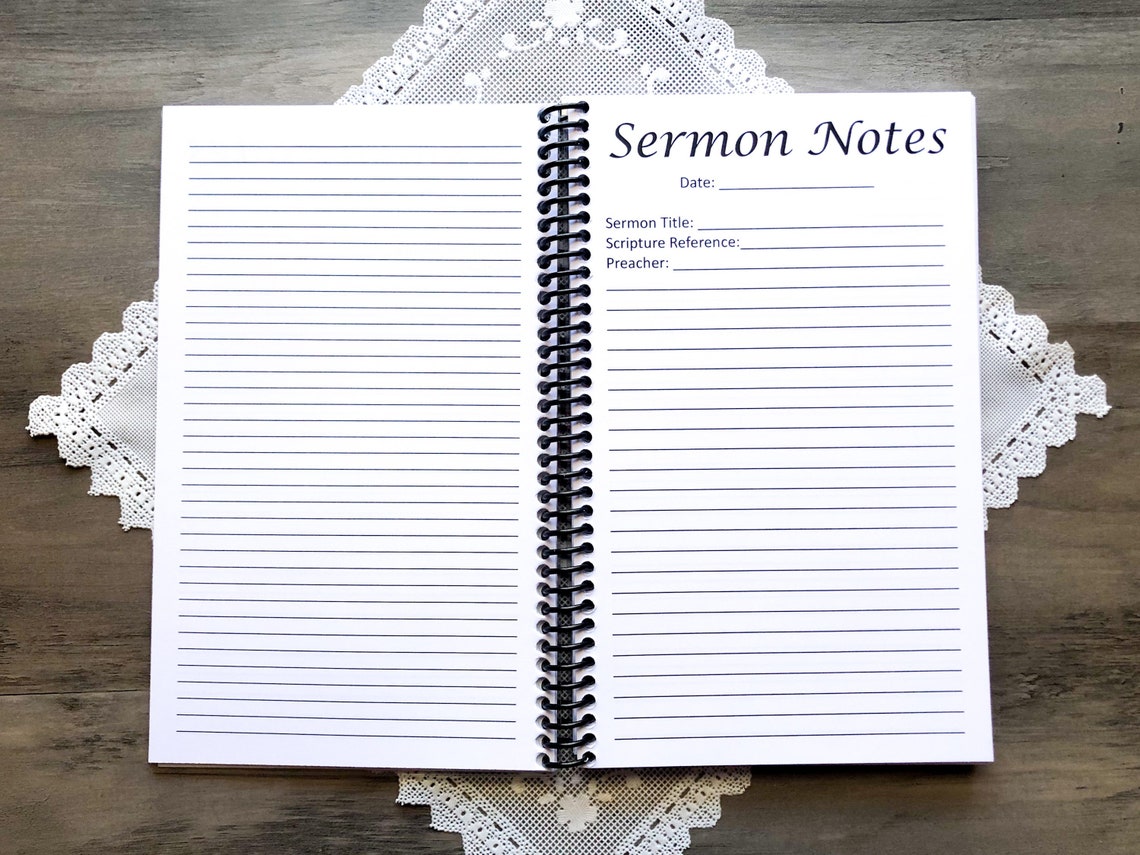 Sermon Notes
Date: ____________________
Sermon Title: ________________________________
Scripture Reference:___________________________
Preacher: ___________________________________